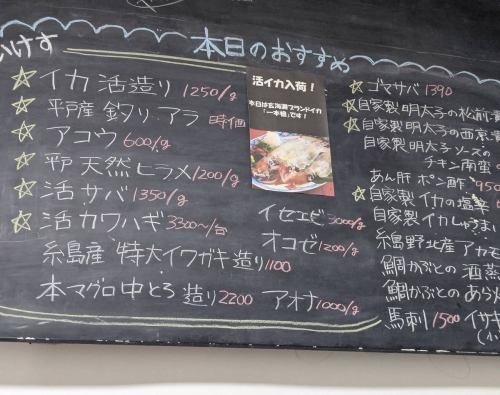 本日のおすすめ
いけす
☆イカ 活造り 1250/g
☆平戸産 釣り アラ 時価
☆アコウ 600/g
☆平戸 天然 ヒラメ 1200/g
☆活 サバ 1350/g
☆活 カワハギ 3300~/台
糸島産 特大イワガキ 造り 1100
本マグロ中とろ 造り 2200
イセエビ 3000/g
オコゼ 1200/g
アオナ 1000/g
活イカ入荷!
本日は玄海灘ブランドイカ
「一本槍」です!
☆ゴマサバ 1390
☆自家製 明太子の松前
☆自家製 明太子の西京
自家製 明太子ソースの
チキン南蛮
あん肝 ポン酢 950
☆自家製 イカの塩辛
自家製 イカしゅうまい
糸島野北産 アカモ
鯛かぶとの 酒蒸
鯛かぶとの あら
馬刺 1500 イサキ